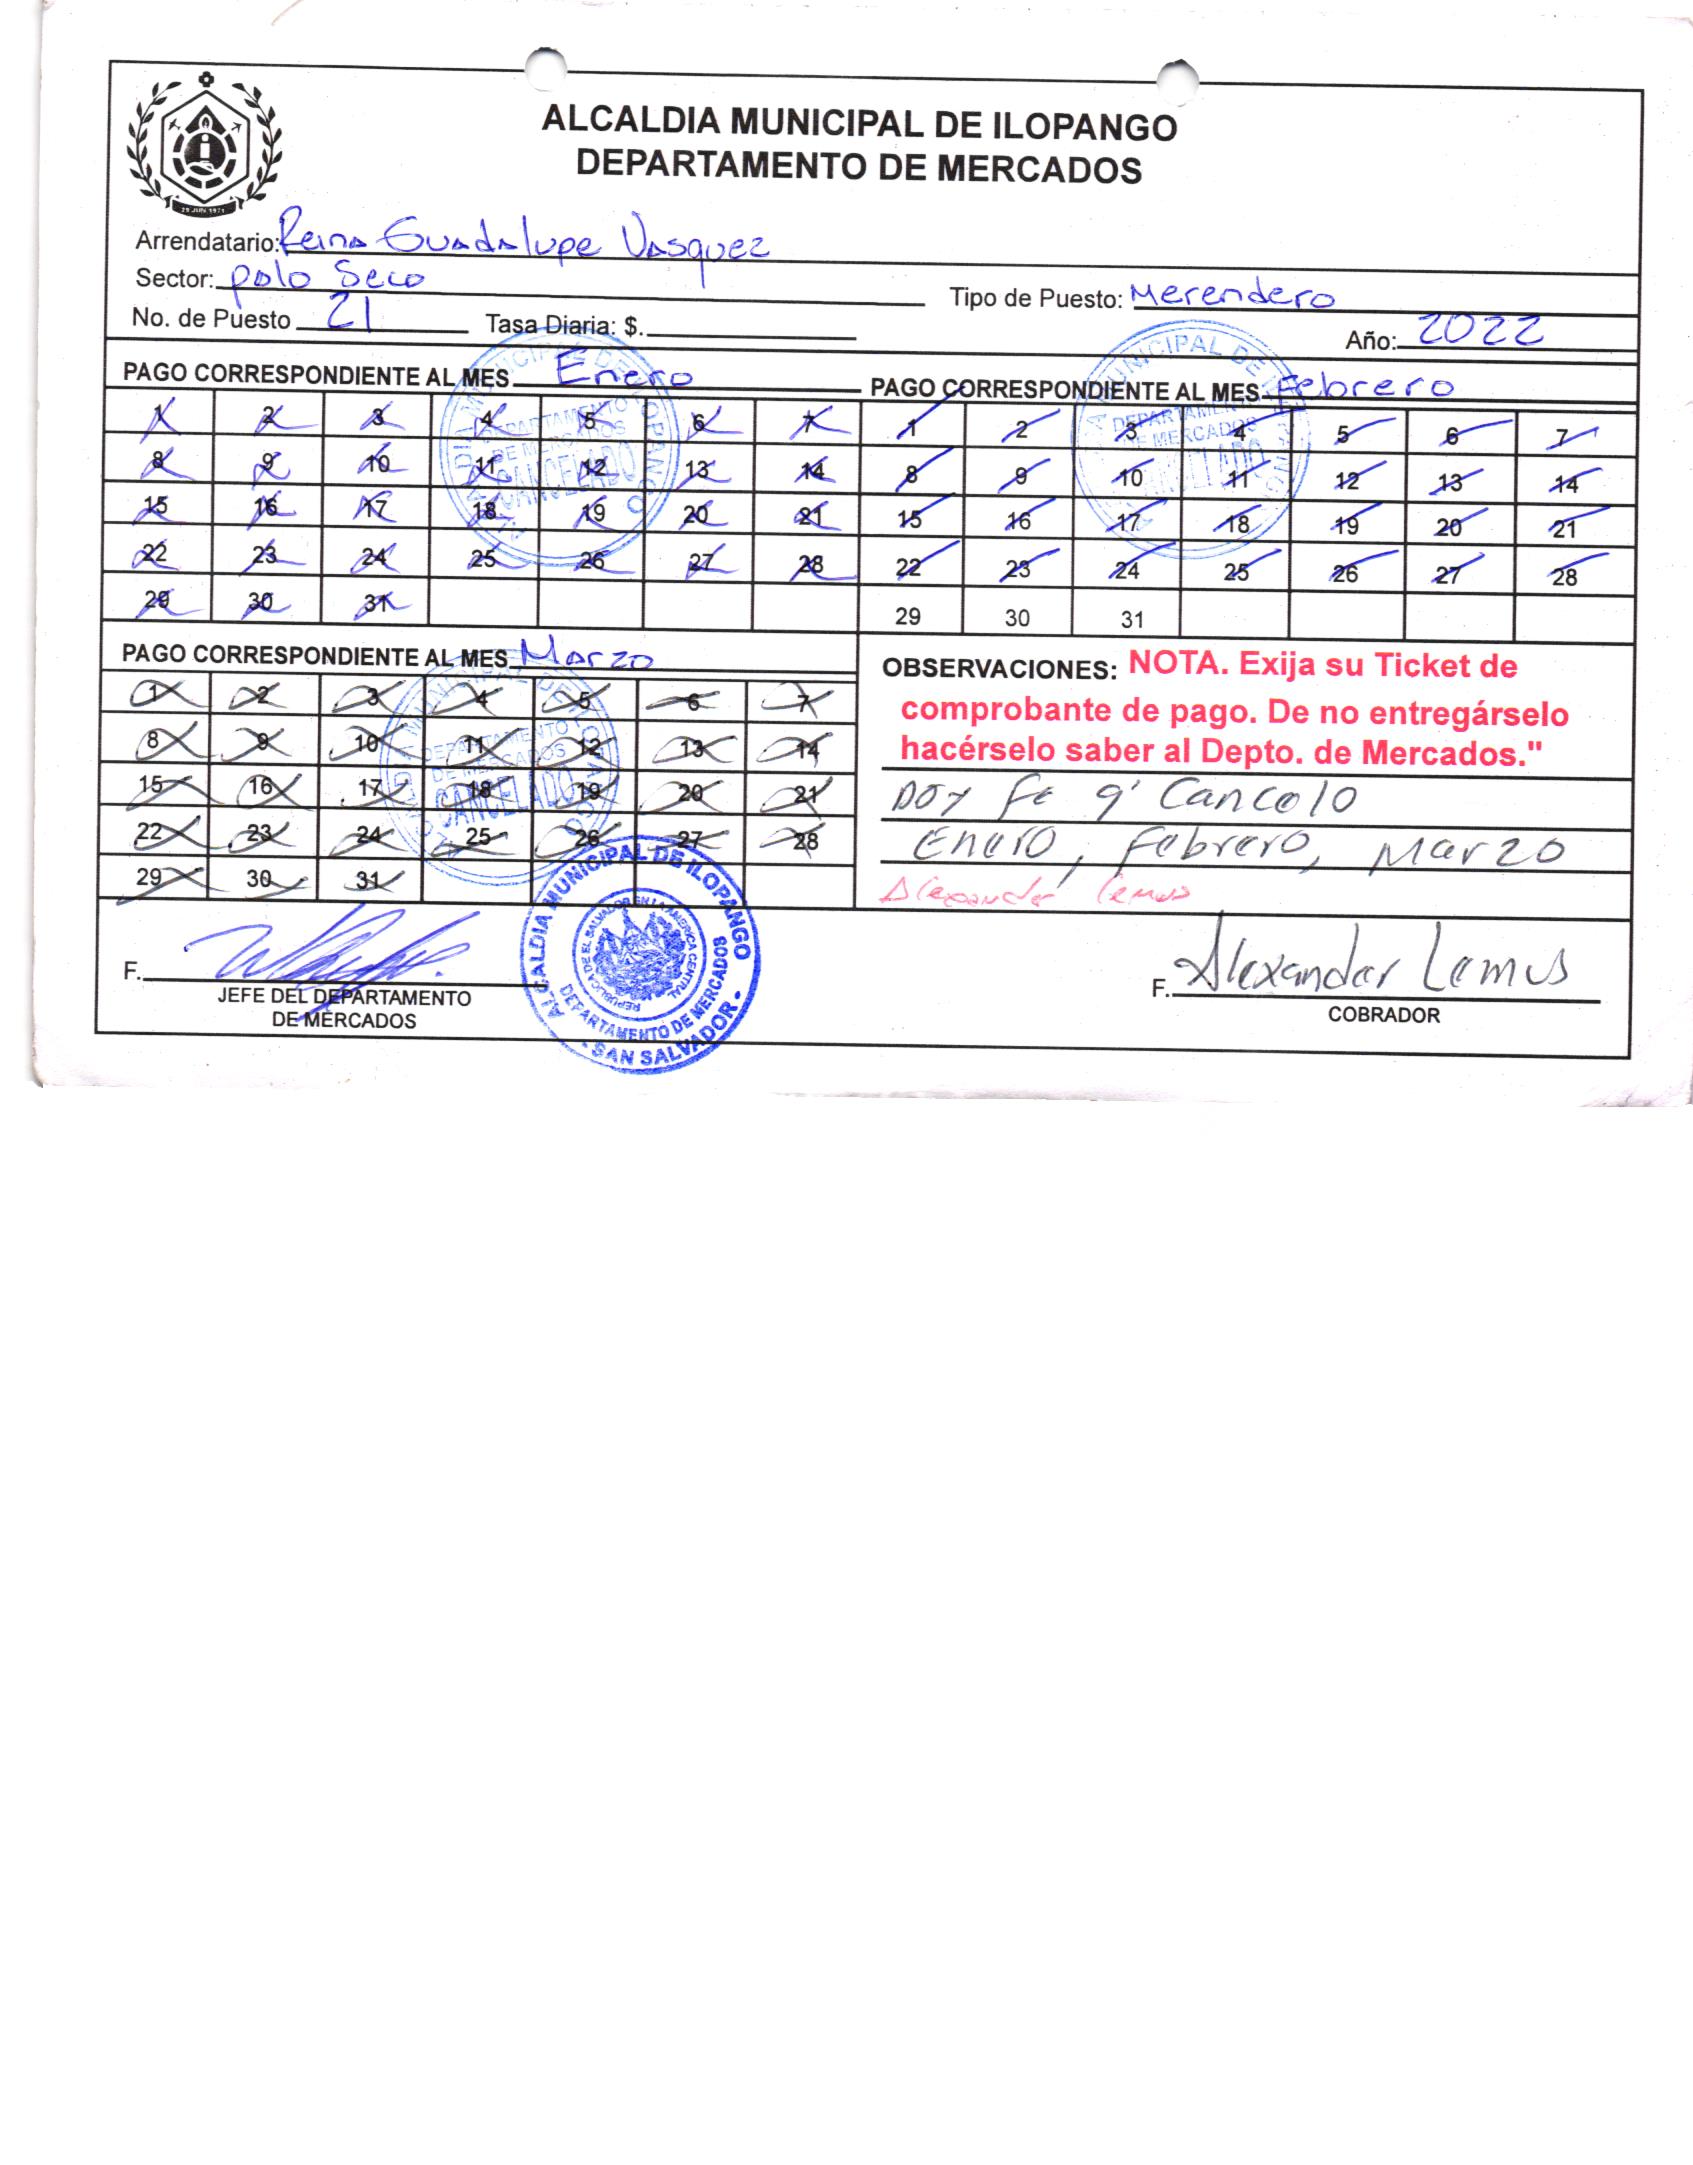 ALCALDIA MUNICIPAL DE ILOPANGO
DEPARTAMENTO DE MERCADOS
29 JUN 1971
Arrendatario: Reina Guadalupe Vasquez
Sector: palo Seco
Tipo de Puesto: Merendero
No. de Puesto 21 Tasa Diaria: $.
Año: 2022
PAGO CORRESPONDIENTE AL MES Enero
1 2 3 4 5 6 7
8 9 10 11 12 13 14
15 16 17 18 19 20 21
22 23 24 25 26 27 28
29 30 31
PAGO CORRESPONDIENTE AL MES Febrero
1 2 3 4 5 6 7
8 9 10 11 12 13 14
15 16 17 18 19 20 21
22 23 24 25 26 27 28
29 30 31
PAGO CORRESPONDIENTE AL MES Marzo
1 2 3 4 5 6 7
8 9 10 11 12 13 14
15 16 17 18 19 20 21
22 23 24 25 26 27 28
29 30 31
DEPARTAMENTO
DE MERCADOS
CANCELADO
OBSERVACIONES: NOTA. Exija su Ticket de
comprobante de pago. De no entregárselo
hacérselo saber al Depto. de Mercados."
Doy fe q' Cancelo
Enero, Febrero, Marzo
Alexander Lemus
F.
JEFE DEL DEPARTAMENTO
DE MERCADOS
ALCALDIA MUNICIPAL DE ILOPANGO
REPUBLICA DE EL SALVADOR EN LA AMERICA CENTRAL
DEPARTAMENTO DE MERCADOS
- SAN SALVADOR -
F. Alexander Lemus
COBRADOR